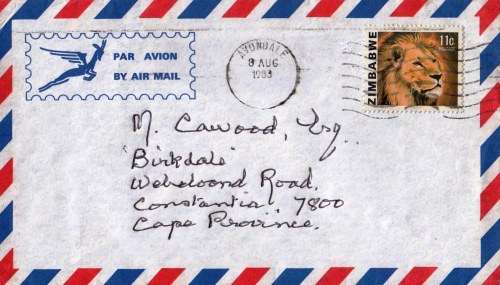 PAR AVION
BY AIR MAIL
AVONDALE
8 AUG
1983
11c
ZIMBABWE
M. Cawood, Esq.
"Birkdale"
Road,
Constantia, 7800
Cape Province.